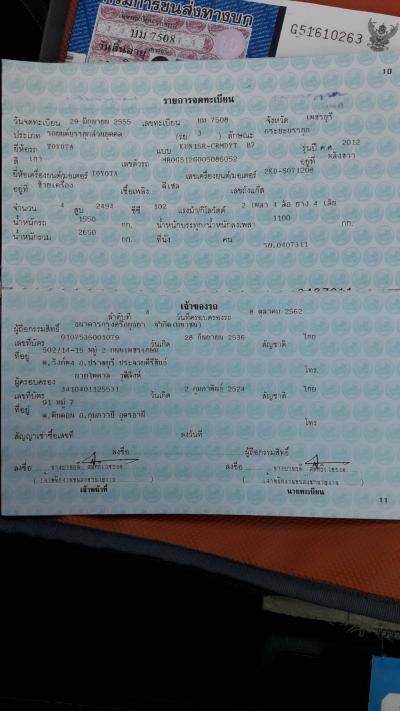 กรมการขนส่งทางบก
บม 7508
วันสิ้นอายุ
G51610263
10
รายการจดทะเบียน
วันจดทะเบียน 29 มิถุนายน 2555 เลขทะเบียน บม 7508 จังหวัด เพชรบุรี
ประเภท รถยนต์บรรทุกส่วนบุคคล (รย 3 ) ลักษณะ กระบะบรรทุก
ยี่ห้อรถ TOYOTA แบบ KUN15R-CRMDYT B7 รุ่นปี ค.ศ. 2012
สี เทา เลขตัวรถ MR0GS12G005086052 อยู่ที่
ยี่ห้อเครื่องยนต์/มอเตอร์ TOYOTA เลขเครื่องยนต์/มอเตอร์ 2KD-S071208
อยู่ที่ ซ้ายเครื่อง เชื้อเพลิง ดีเซล เลขถังแก๊ส
จำนวน 4 สูบ 2494 ซีซี 102 แรงม้า/กิโลวัตต์ 2 เพลา 4 ล้อ ยาง 4 เส้น
น้ำหนักรถ 1550 กก. น้ำหนักบรรทุก/น้ำหนักลงเพลา 1100 กก.
น้ำหนักรวม 2650 กก. ที่นั่ง คน รย.0407311
0407311
เจ้าของรถ
ลำดับที่ 4 วันที่ครอบครองรถ 8 ตุลาคม 2562
ผู้ถือกรรมสิทธิ์ ธนาคารกรุงศรีอยุธยา จำกัด(มหาชน)
เลขที่บัตร 0107536001079 วันเกิด 28 กันยายน 2536 สัญชาติ ไทย
ที่อยู่ 502/14-15 หมู่-2 ถนนเพชรเกษม
ต.วังก์พง อ.ปราณบุรี ประจวบคีรีขันธ์ โทร.
ผู้ครอบครอง นายไพศาล
เลขที่บัตร 3410401125531 วันเกิด 2 กุมภาพันธ์ 2524 สัญชาติ ไทย
ที่อยู่ 91 หมู่ 7
อ.กุมภวาปี อุดรธานี โทร
สัญญาเช่าซื้อเลขที่ ลงวันที่
ลงชื่อ ผู้ถือกรรมสิทธิ์
ลงชื่อ ลงชื่อ
เจ้าหน้าที่ นายทะเบียน
11